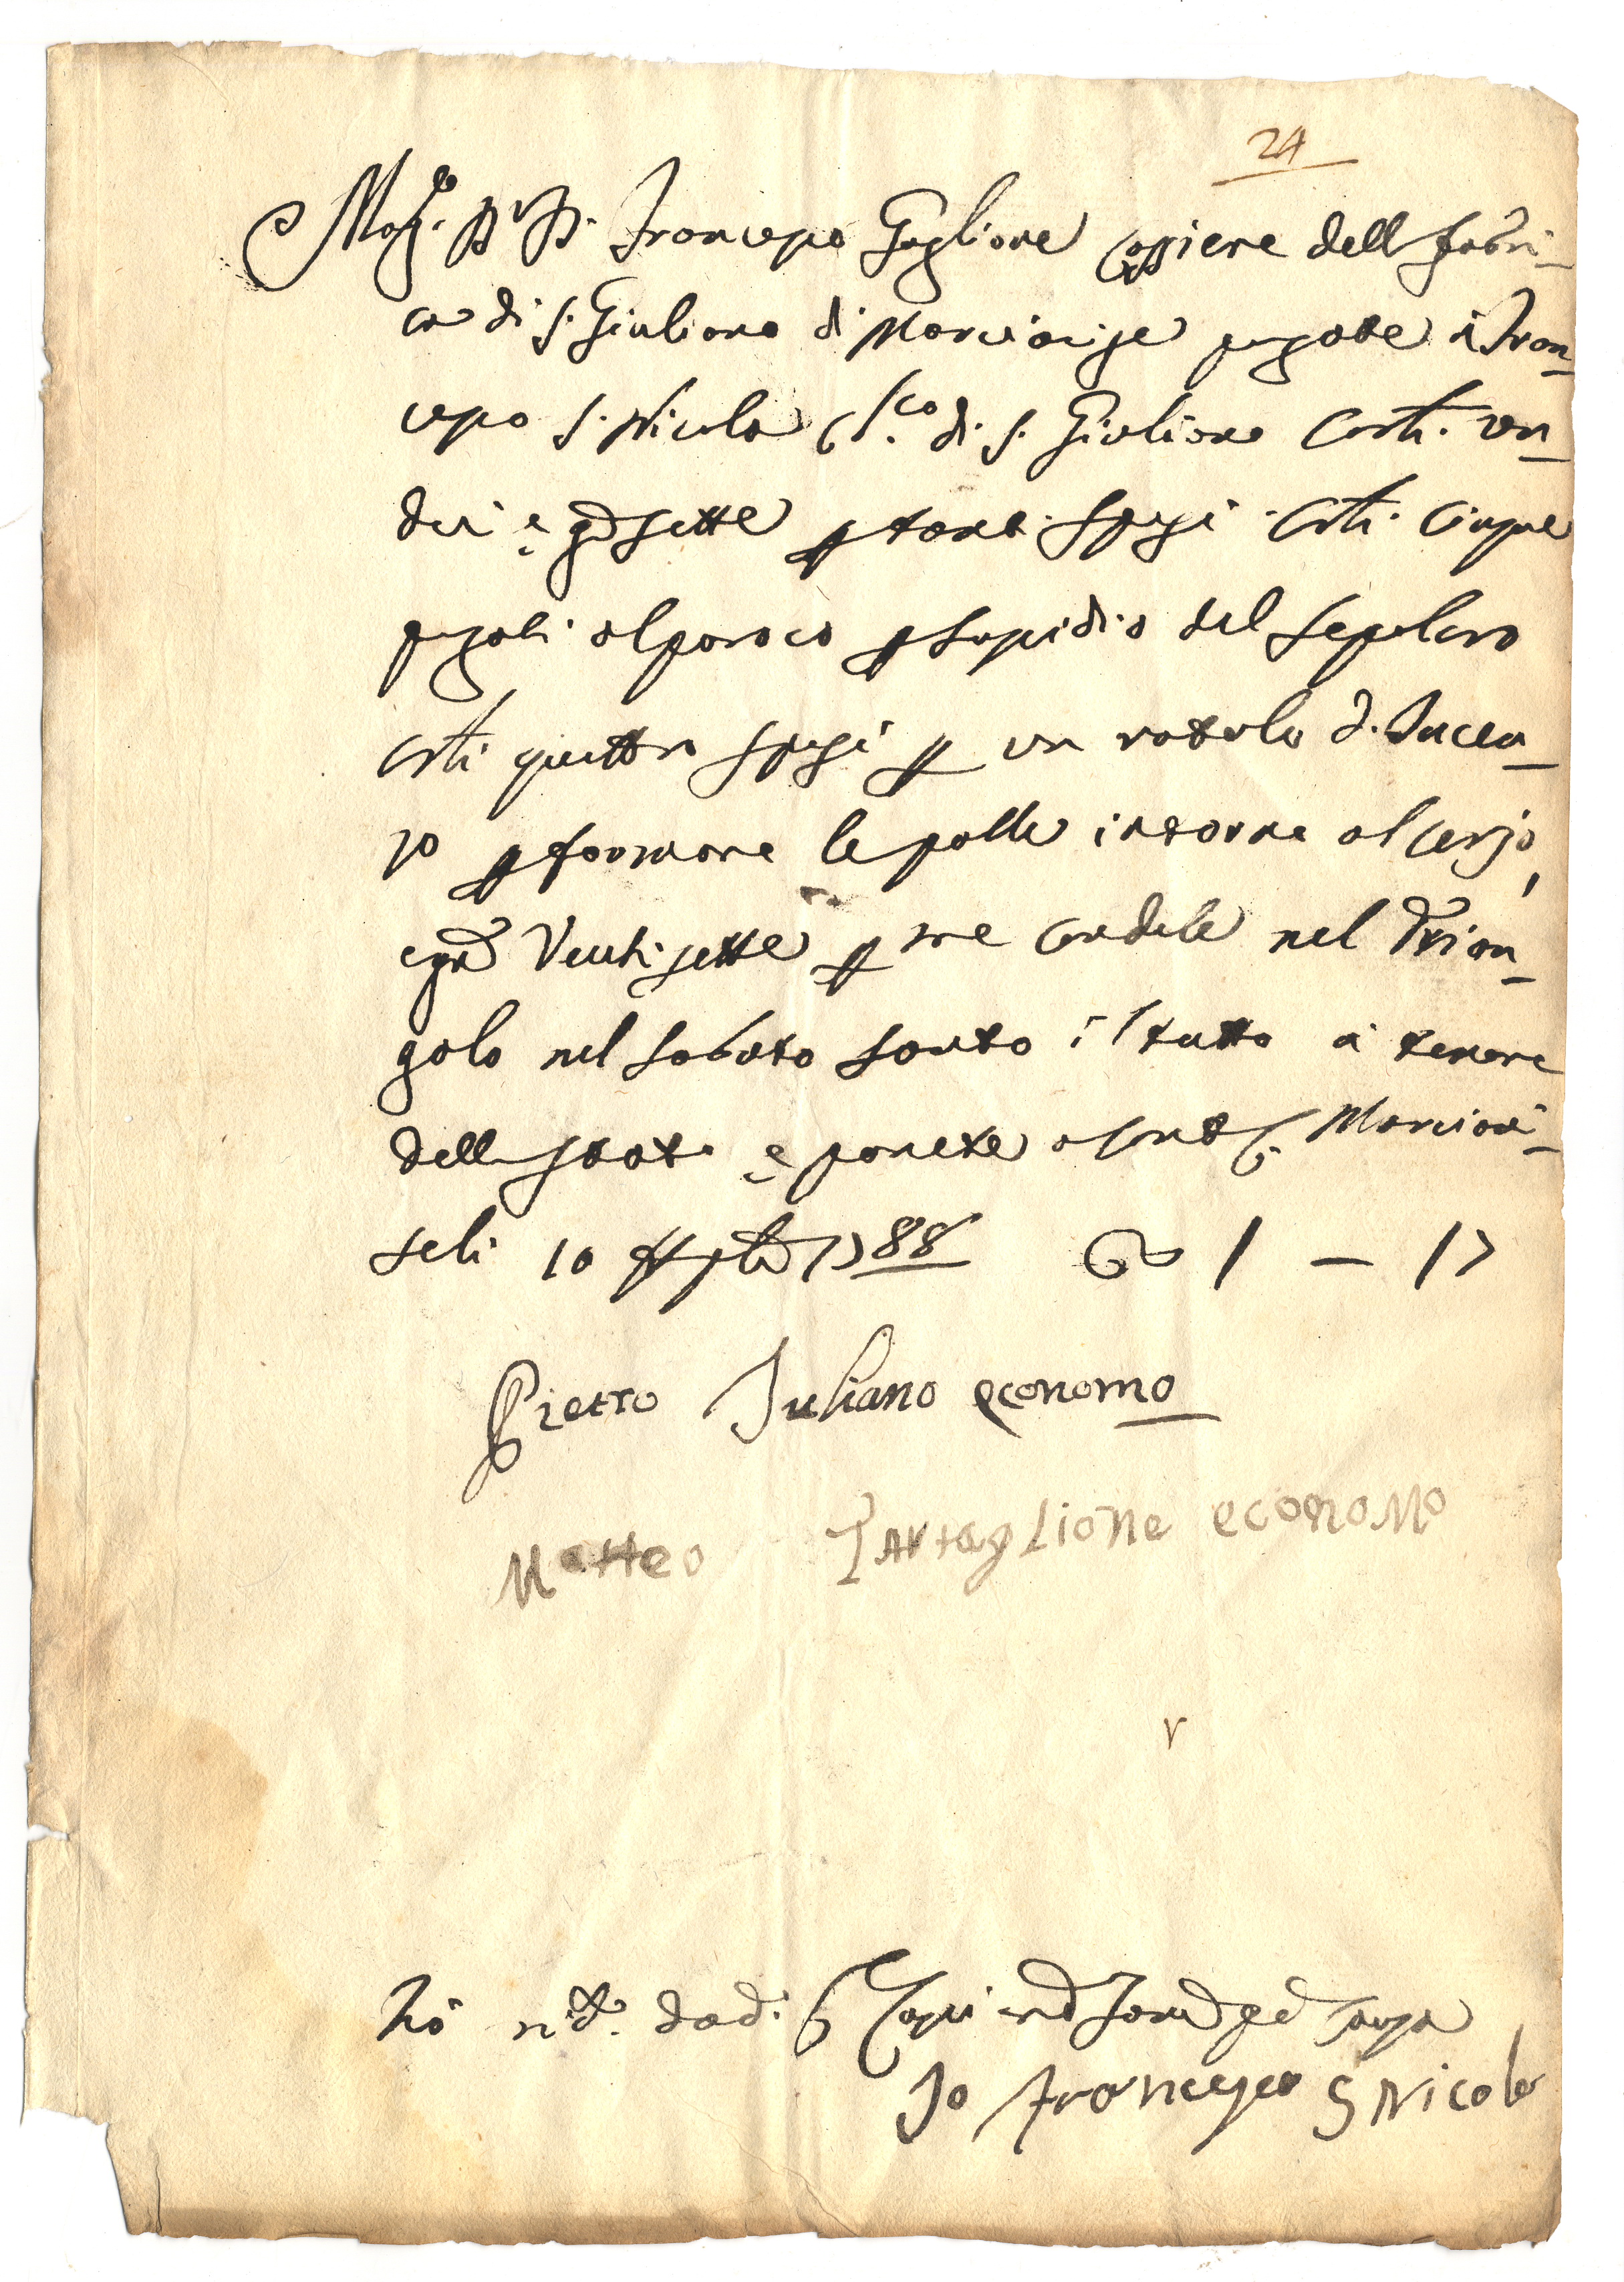 24
Mag.co D.r D. Francesco Gaglione Cassiere dell fabri-
ca di S. Giuliano di Marcianise pagate à Fran-
cesco S. Nicola di S. Giuliano carli. un-
deci e gra sette p tanti spesi Carli. Cinque
pagati al paroco p sussidio del sepolcro
Carli quattro spesi p un rotolo d. Incen-
zo p formare le palle intorno al cerjo,
e gra Ventisette p tre candele nel Trian-
golo nel sabato santo il tutto à tenore
dell stato e ponete a Marciani-
seli 10 1788 1 – 17
Pietro Iuliano economo
Matteo Tartaglione economo
Hò
Io Francesco S Nicola